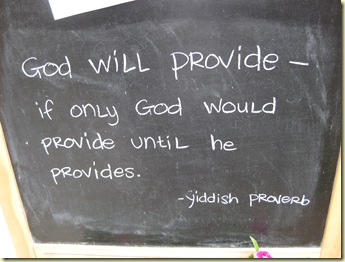 God will provide —
if only God would
provide until he
provides.
-yiddish proverb